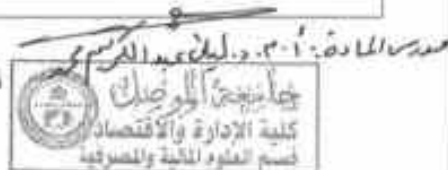 مدرس المادة: أ.م.د. ليلى عبد الكريم محمد
جامعة الموصل
كلية الإدارة والاقتصاد
قسم العلوم المالية والمصرفية